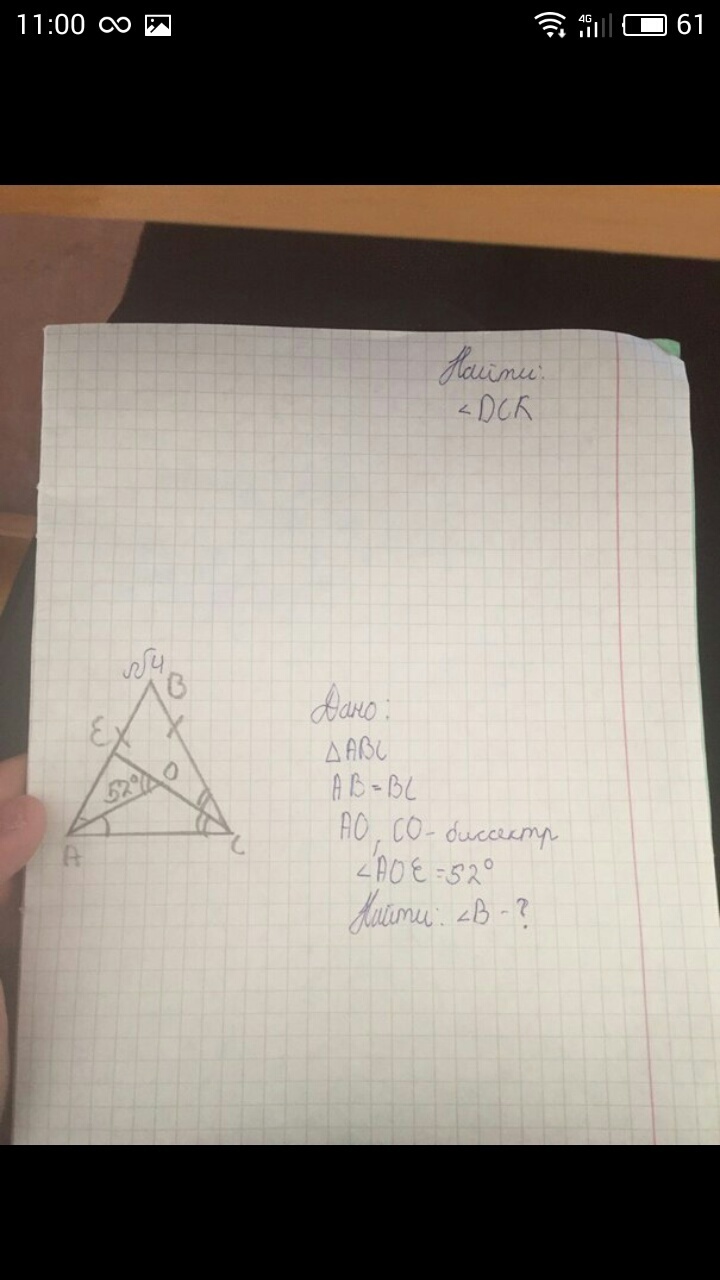 11:00 4G 61
Найти:
∠DCK
№4
B
E
O
52°
A
C
Дано:
△ABC
AB=BC
AO, CO- биссектр
∠AOE=52°
Найти: ∠B-?